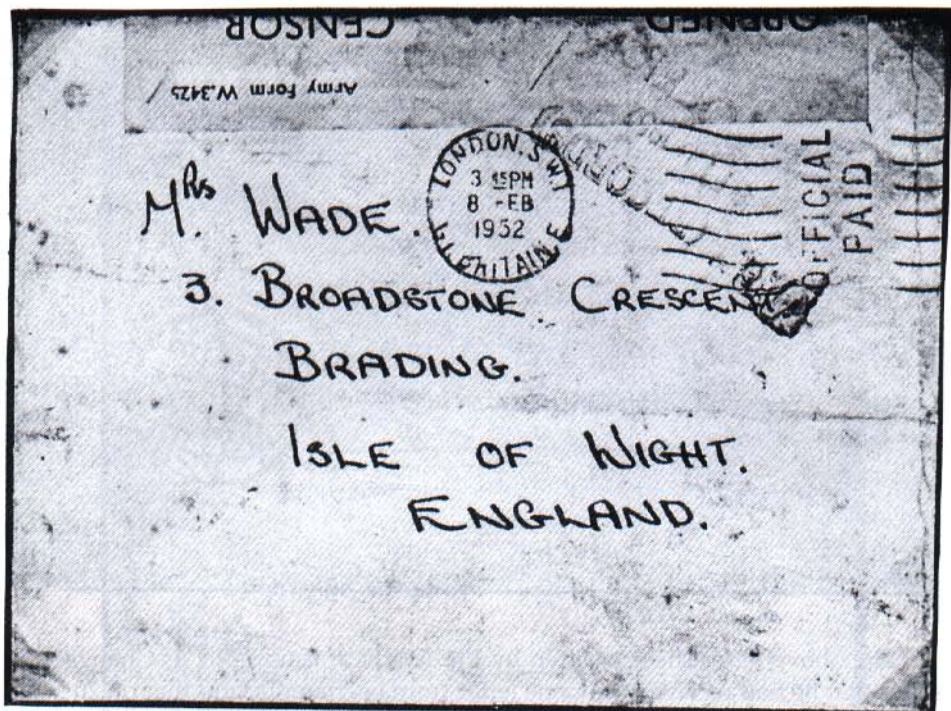 OPENED CENSOR
Army Form W.3425
LONDON. S.W.1
3 15PM
8 FEB
1952
OFFICIAL
PAID
Mrs. WADE.
3. BROADSTONE CRESCENT
BRADING.
ISLE OF WIGHT.
ENGLAND.